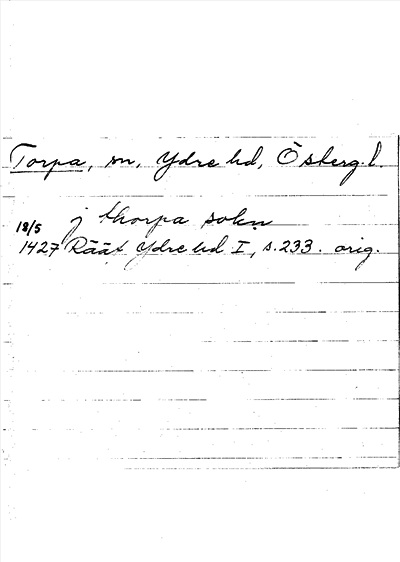 Torpa, sn, Ydre hd, Ösberg. l.
j thorpa sokn
18/5
1427 Rääf Ydre hd I, s. 233. orig.